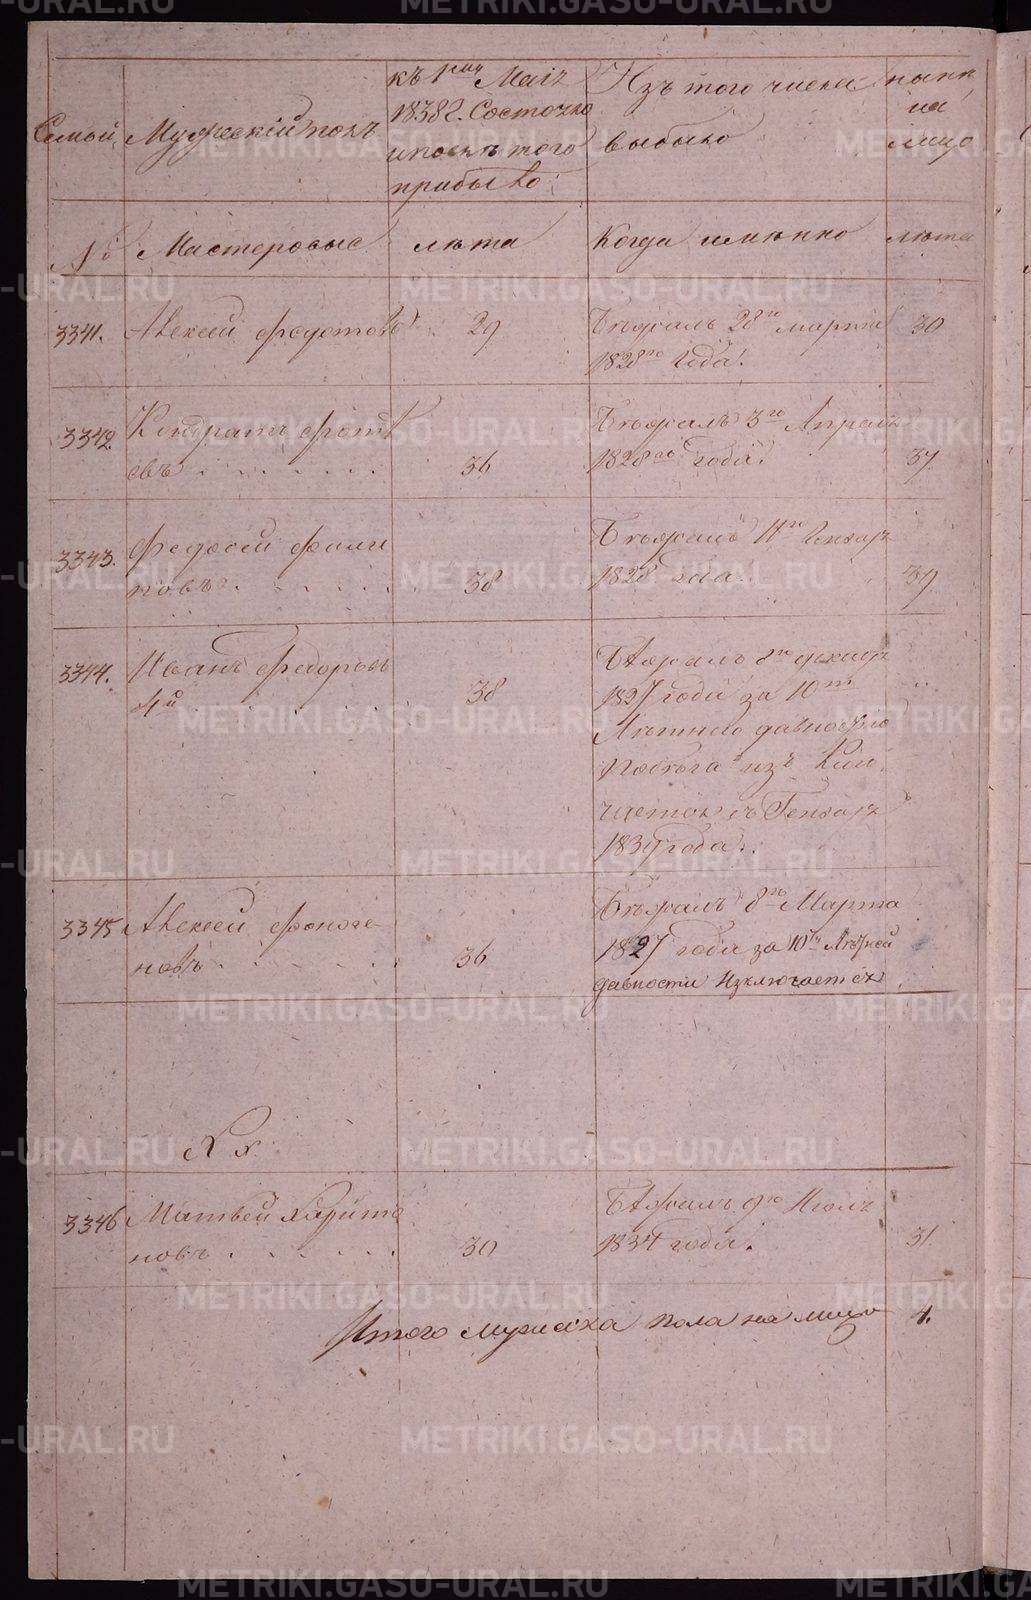 Семьи,
Мужескій полъ
къ 1му Маія
1838 г. Состояло
и послѣ того
прибыло
Изъ того числа
выбыло
нынѣ
на
лицо
№
Мастеровые
лѣта
Когда именно
лѣта
3341.
Алексей Федотовъ
29
Бѣжалъ 28го марта
1828го года.
30
3342.
Кондратъ Фоти
евъ
36
Бѣжалъ 3го Апреля
1828го года.
37
3343.
Федосей Фили
новъ
38
Бѣжалъ 11го Генваря
1828 года.
39
3344.
Иванъ Федоровъ
4й
38
Бѣжалъ 8го декабря
1827 года за 10ти
Лѣтнею давностію
побѣга изъ
в Генваря
1839 года.
3345
Алексей Фоноге
новъ
36
Бѣжалъ 8го Марта
1827 года за 10ти Лѣтней
давности Изключается
Х х
3346
Матвей Харито
новъ
30
Бѣжалъ 9го Июля
1834 года.
31.
Итого мужеска пола на лицо
4.
METRIKI.GASO-URAL.RU